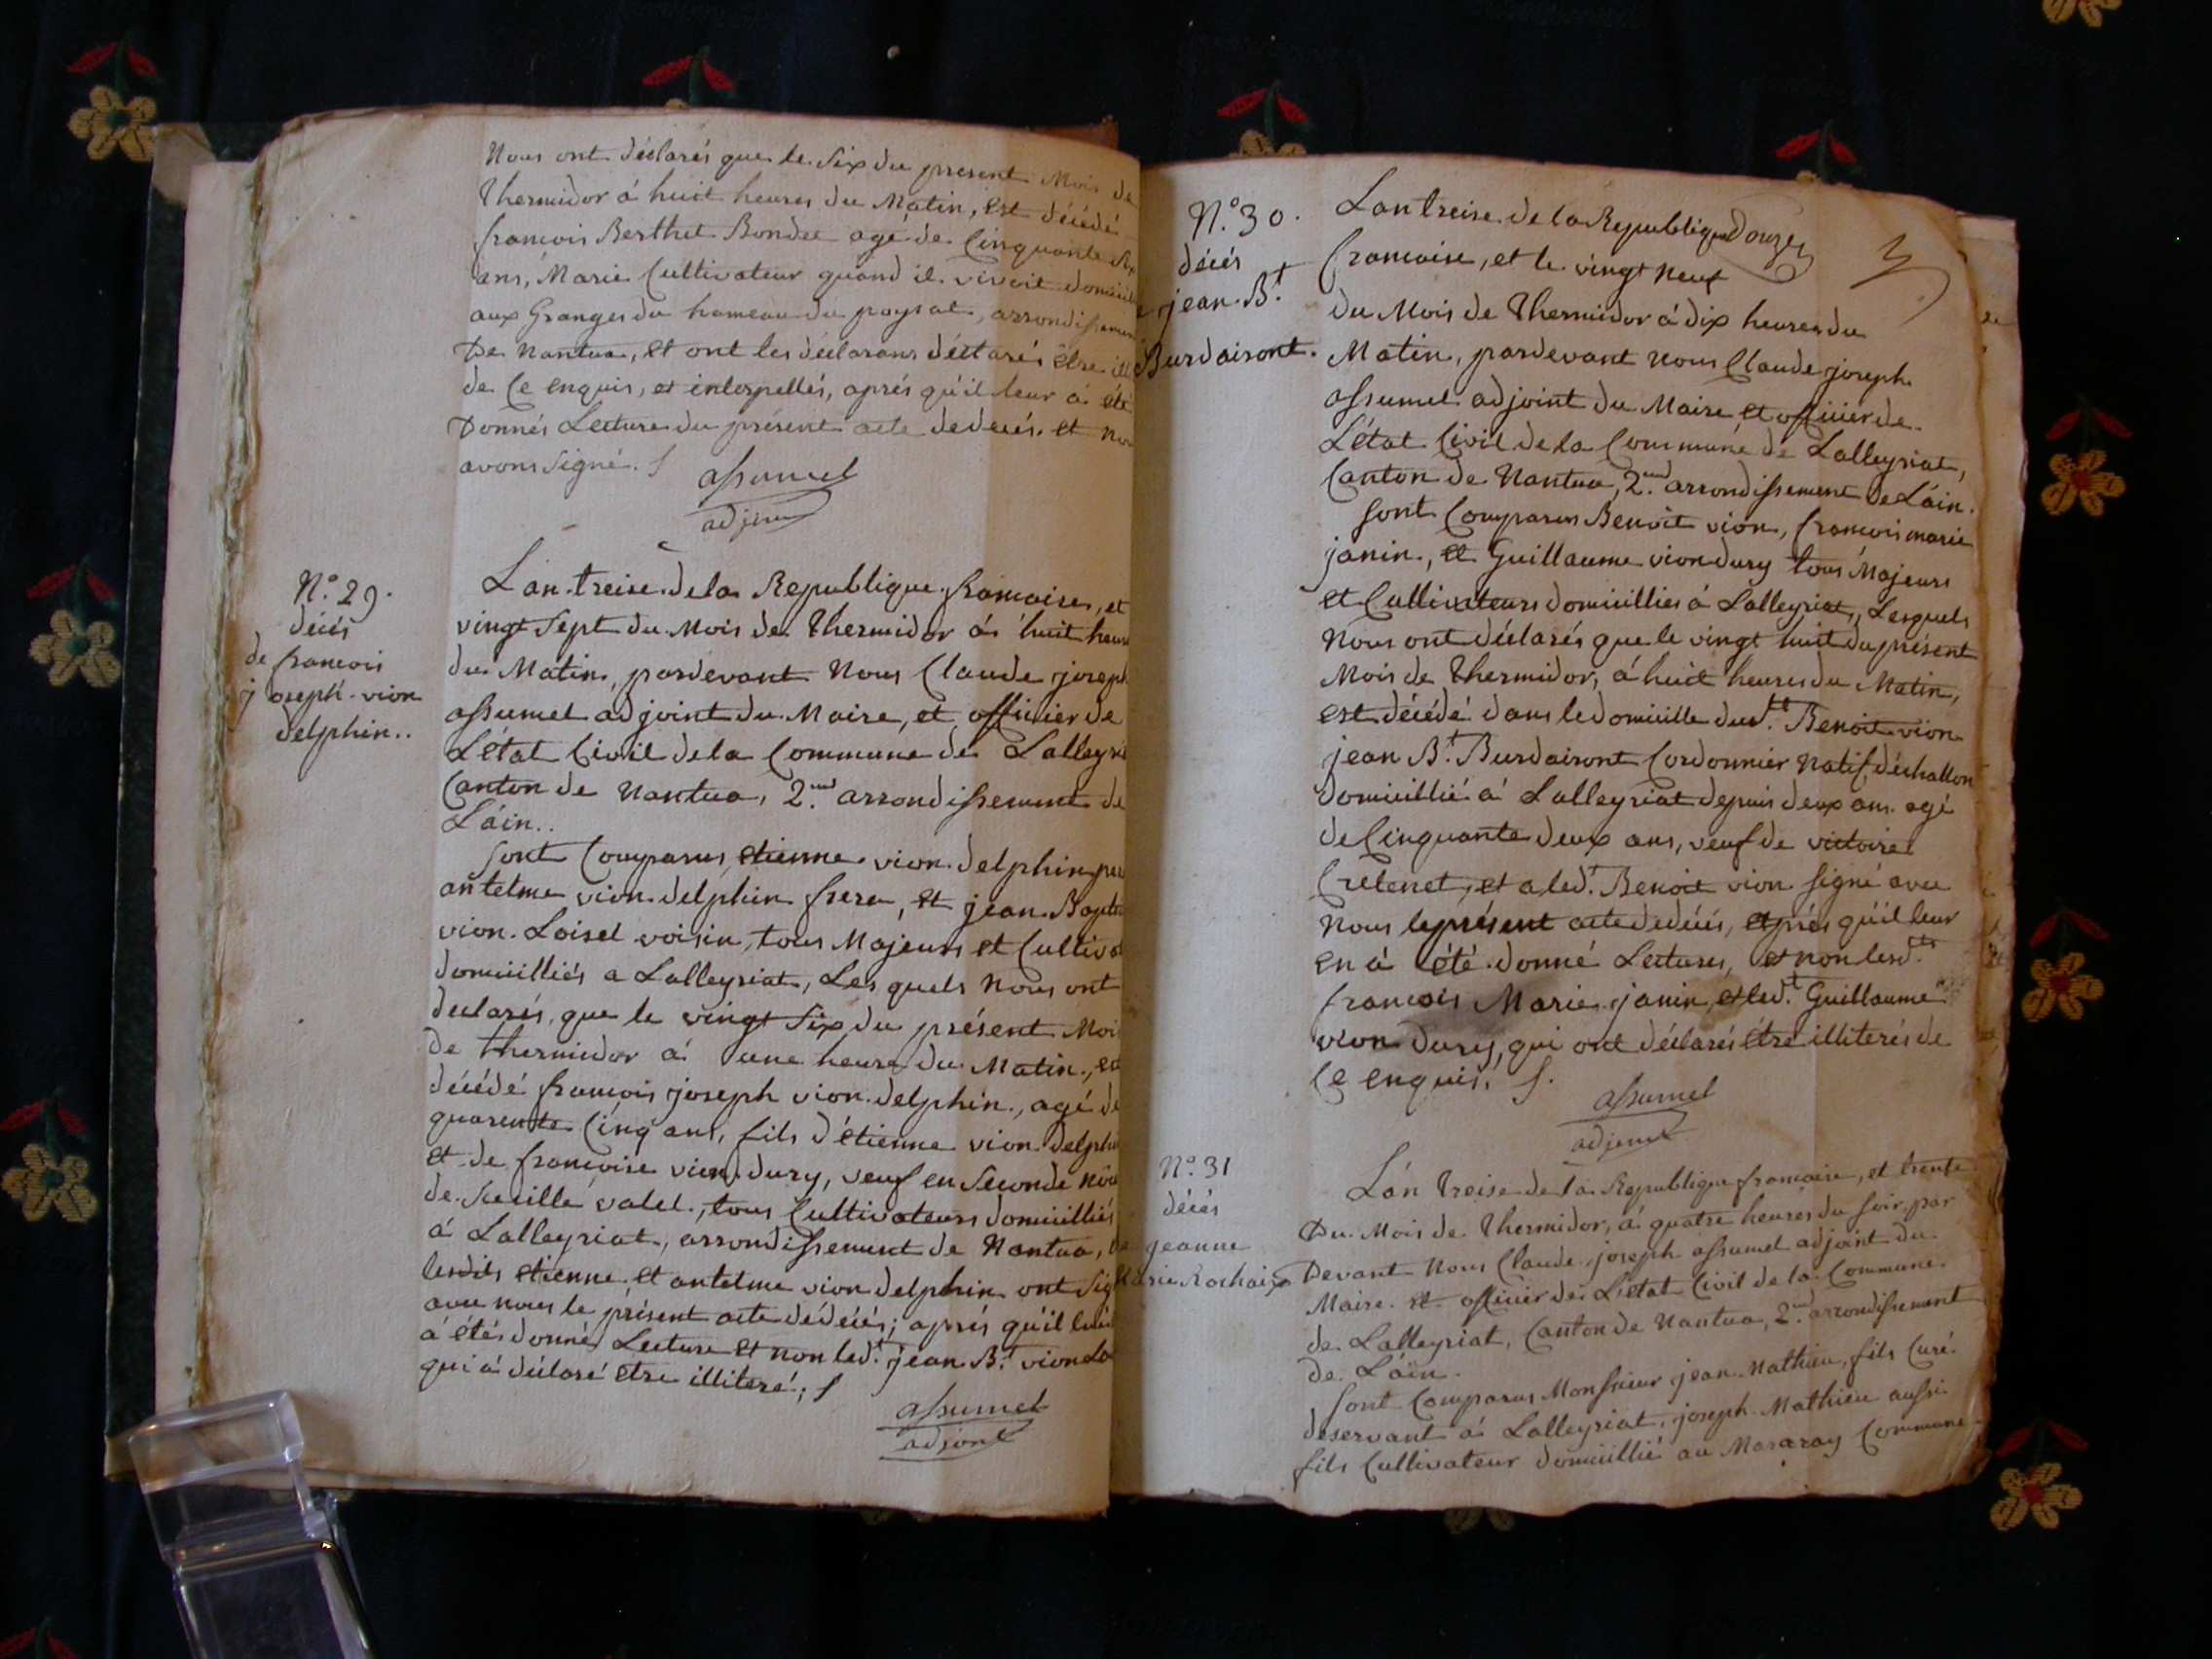 Nous ont déclarés que le Six du present Mois de
Thermidor á huit heures du Matin, est décédé
francois Berthet Bondet agé de Cinquante six
ans, Marié Cultivateur quand il vivoit domicilié
aux Granges du hameau du poysat, arrondissement
De Nantua, et ont les déclarans déclarés être ill
de Ce enquis, et interpellés, aprés qu'il leur á été
Donnés Lecture du présent acte de decés. et nous
avons signé. /
assumel
adjoint
N.° 29.
décés
de francois
joseph vion
delphin..
L'an treise de la Republique francaise, et
vingt Sept du Mois de Thermidor á huit heures
du Matin, pardevant Nous Claude joseph
assumel adjoint du Maire, et officier de
L'état Civil de la Commune de Lalleyriat
Canton de Nantua, 2.nd arrondissement de
L'áin..
Sont Comparus etienne vion delphin pere
antelme vion delphin frere, et jean Baptiste
vion Loisel voisin, tous Majeurs et Cultivateurs
domicilliés a Lalleyriat, Les quels Nous ont
declarés, que le vingt Six du présent Mois
de thermidor á une heure du Matin, est
décédé francois joseph vion delphin, agé de
quarente Cinq ans, fils d'étienne vion delphin
et de francoise vion dury, veuf en Seconde Nôce
de Sucille valet, tous Cultivateurs domicilliés
á Lalleyriat, arrondissement de Nantua,
lesdits etienne et antelme vion delphin ont signé
avec nous le présent acte de décés; aprés qu'il leur
á étés donné Lecture et non led.t jean B.t vion Lo
qui á déclaré etre illiteré; /
assumel
adjoint
N.° 30.
décés
jean B.t
Burdairont.
L'an treise de la Republique Douze
francaise, et le vingt Neuf
du Mois de Thermidor á dix heures du
Matin, pardevant Nous Claude joseph
assumel adjoint du Maire et officier de
L'état Civil de la Commune de Lalleyriat,
Canton de Nantua, 2.nd arrondissement de L'áin.
Sont Comparus Benoit vion, francois marie
janin, et Guillaume vion dury tous Majeurs
et Cultivateurs domicilliés á Lalleyriat, Lesquels
Nous ont déclarés que le vingt huit du présent
Mois de Thermidor, á huit heures du Matin,
est décédé dans le domicille dud.t Benoit vion
jean B.t Burdairont Cordonnier Natif d'échallon
Domicillié á Lalleyriat depuis deux ans agé
de Cinquante deux ans, veuf de victoire
Cretenet, et a led.t Benoit vion signé avec
Nous le présent acte de décés, aprés qu'il leur
en á été donné Lectures, et non lesd.ts
francois Marie janin, et led.t Guillaume
vion Dury, qui ont déclarés être illiterés de
Ce enquis. /.
assumel
adjoint
N.° 31
décés
de jeanne
Marie Rochaix
L'án Treise de la Republique francaise, et trente
Du Mois de Thermidor, á quatre heures du soir, par
Devant Nous Claude joseph assumel adjoint du
Maire et officier de L'état Civil de la Commune
de Lalleyriat, Canton de Nantua, 2.nd arrondissement
de L'áin.
Sont Comparus Monssieur jean Mathieu, fils Curé
déservant á Lalleyriat, joseph Mathieu aussi
fils Cultivateur domicillié au Mararay Commune